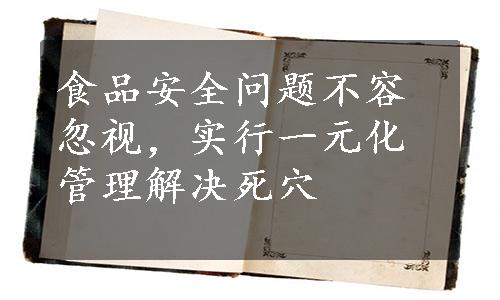 食品安全问题不容
忽视，实行一元化
管理解决死穴